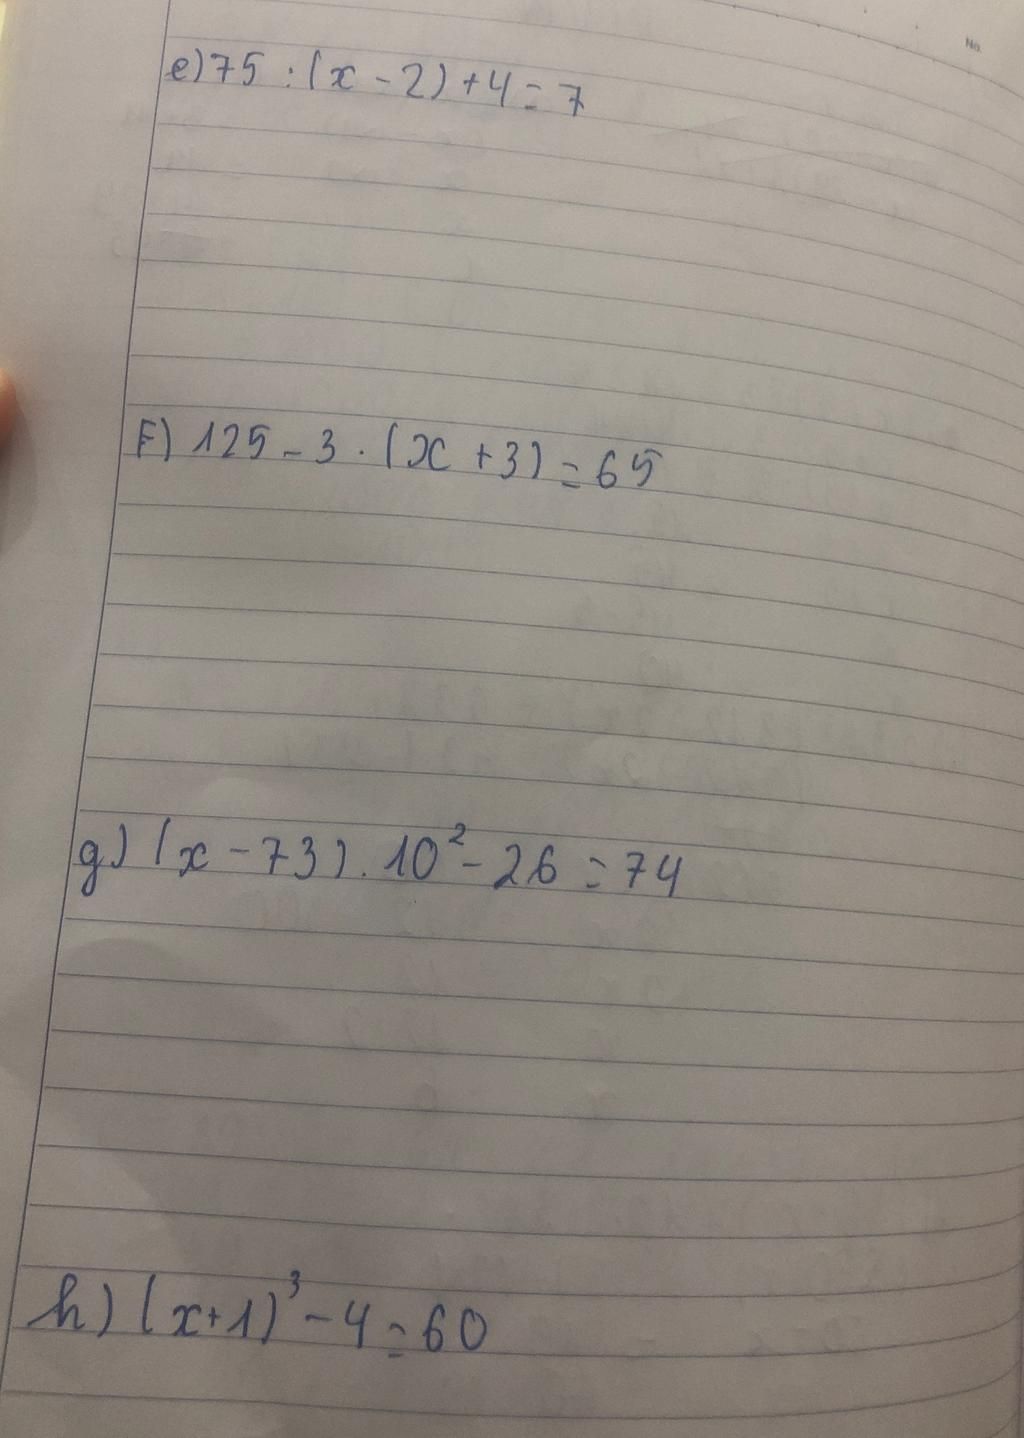 No.
e) 75 : (x - 2) + 4 = 7
F) 125 - 3 . (x + 3) = 65
g) (x - 73) . 10² - 26 = 74
h) (x + 1)³ - 4 = 60